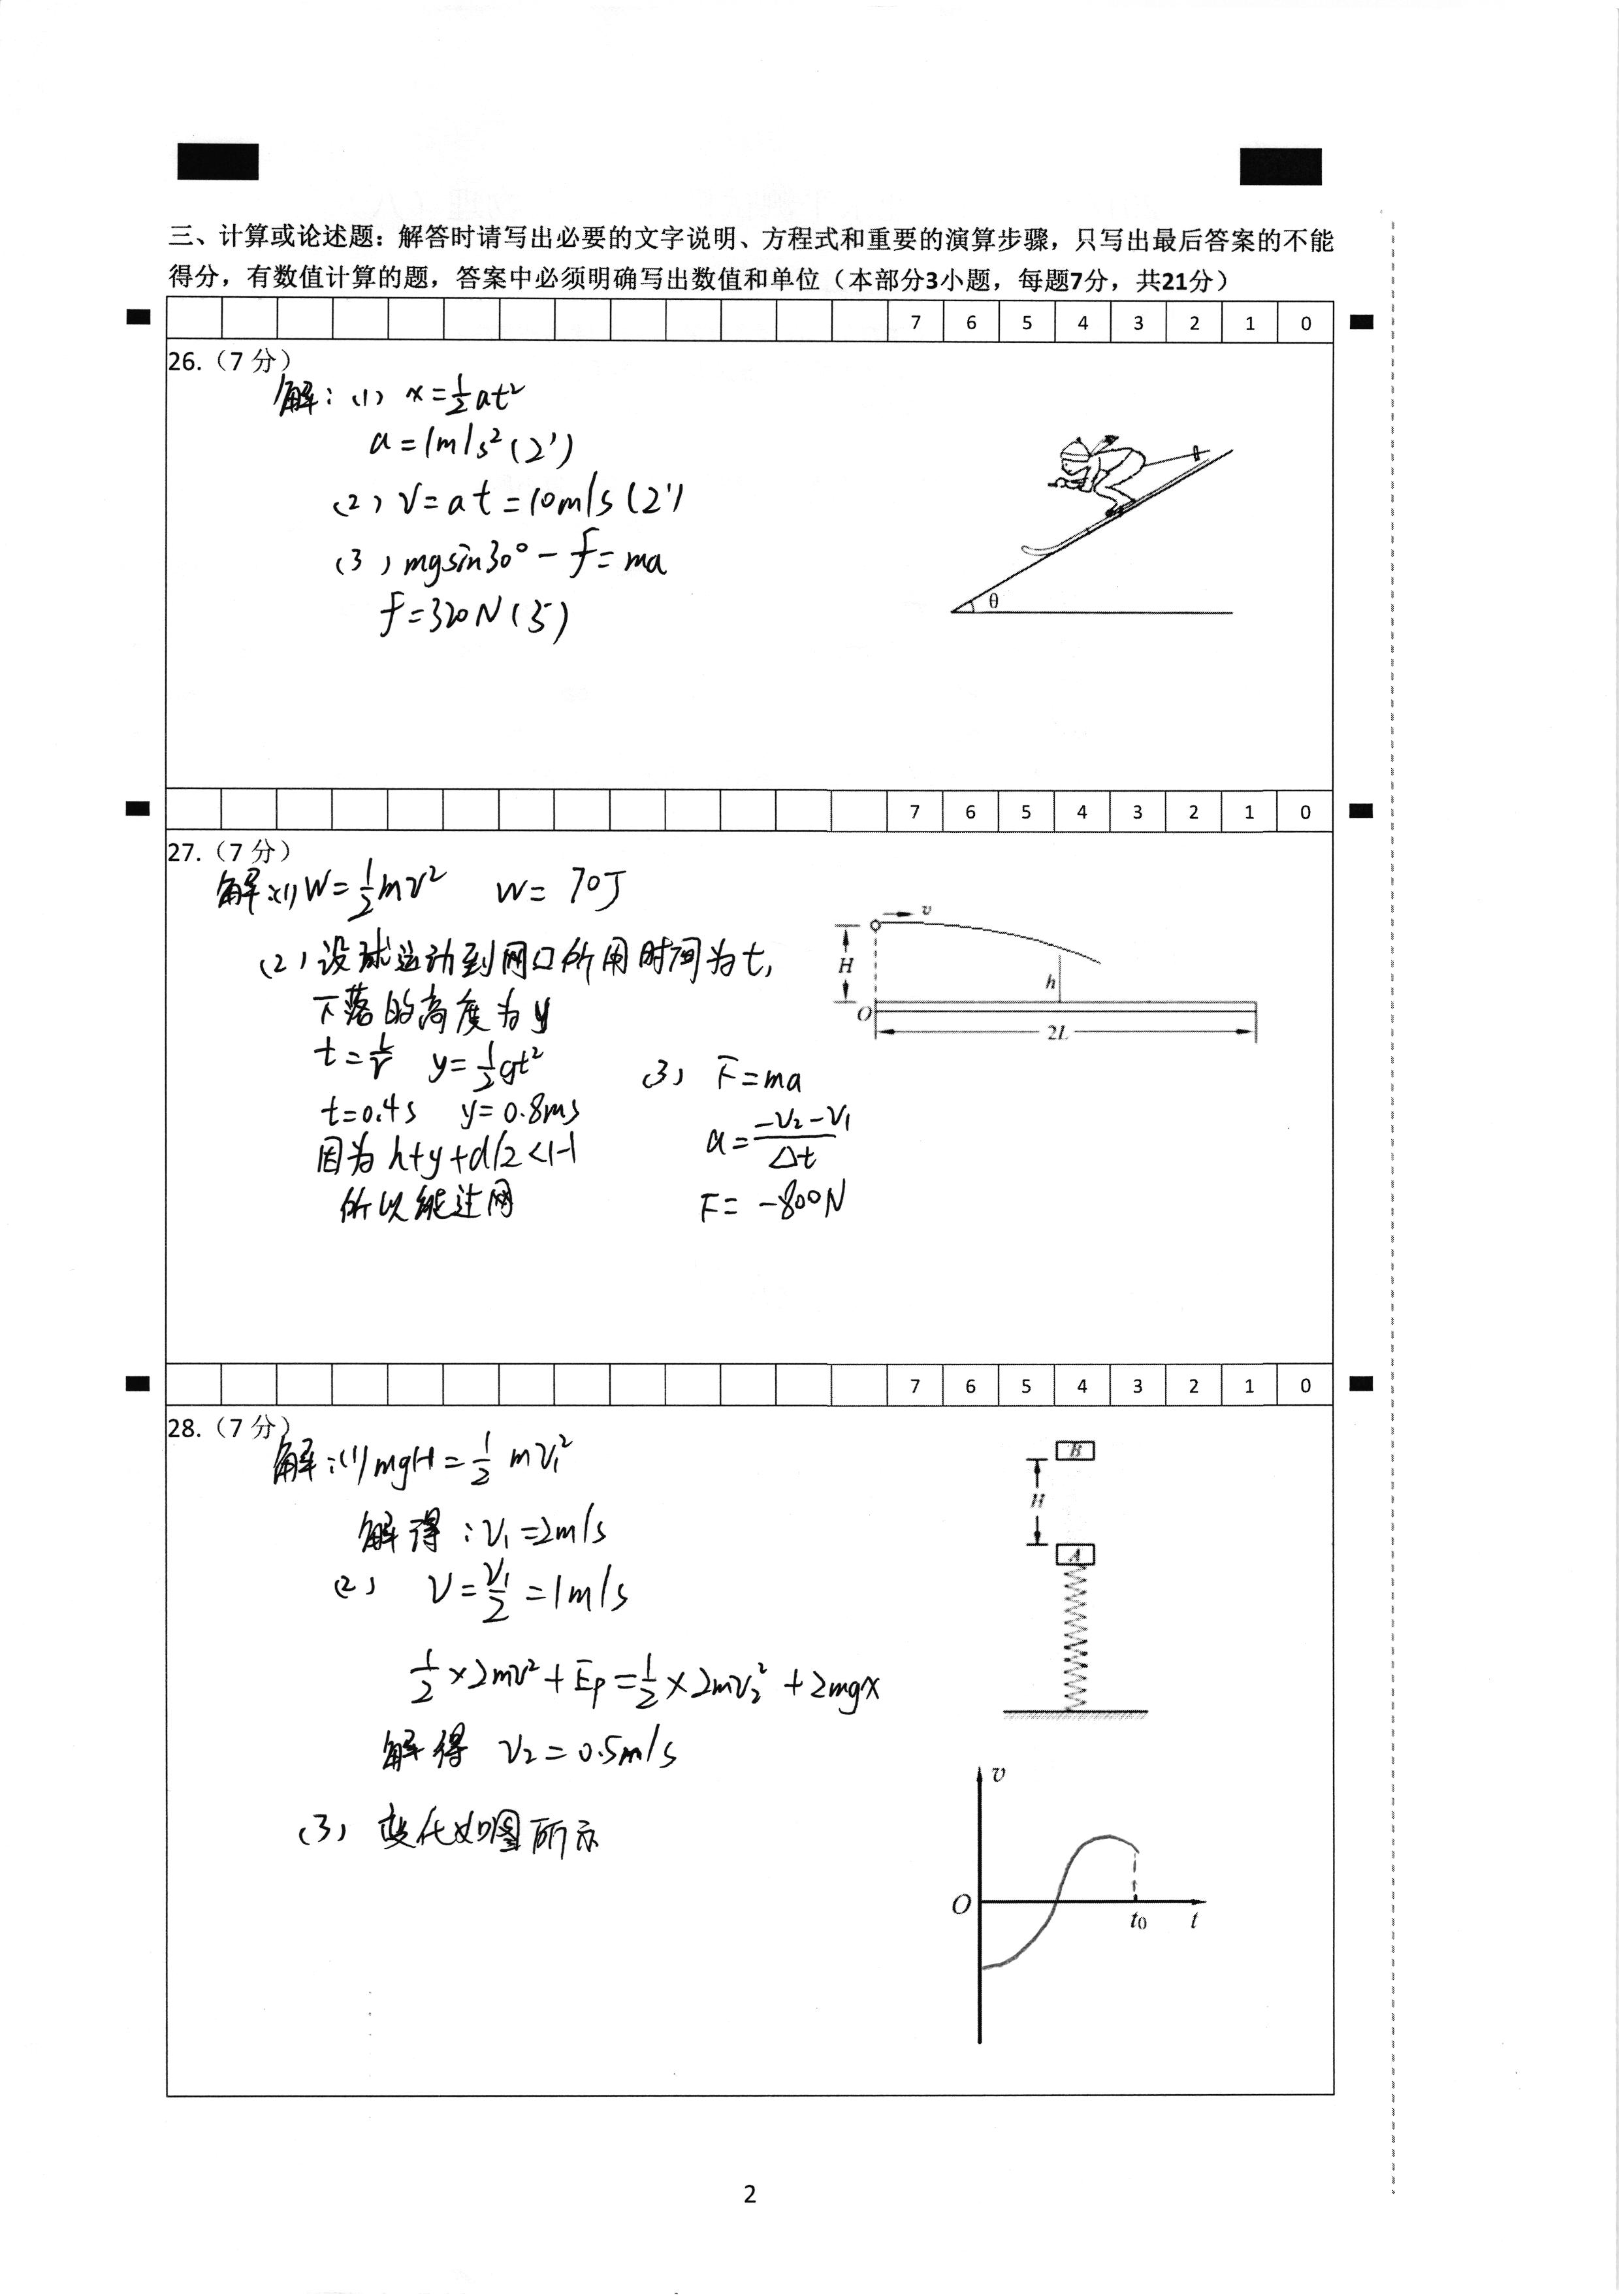 三、计算或论述题：解答时请写出必要的文字说明、方程式和重要的演算步骤，只写出最后答案的不能
得分，有数值计算的题，答案中必须明确写出数值和单位（本部分3小题，每题7分，共21分）
7 6 5 4 3 2 1 0
26.（7 分）
解：(1) x=½at²
a=1m/s²(2')
(2) v=at=10m/s(2')
(3) mgsin30°－f=ma
f=320N(3')
θ
7 6 5 4 3 2 1 0
27.（7 分）
解:(1) W=½mv² W= 70J
(2) 设球运动到网口所用时间为t,
下落的高度为y
t=L/v y=½gt²
t=0.4s y=0.8ms
因为 h+y+d/2<H
所以能过网
(3) F=ma
a=(-v₂-v₁)/Δt
F= -800N
v
H
h
O
2L
7 6 5 4 3 2 1 0
28.（7 分）
解:(1) mgH=½mv₁²
解得:v₁=2m/s
(2) v=v₁/2=1m/s
½×2mv²+Ep=½×2mv₂²+2mgx
解得 v₂=0.5m/s
(3) 变化如图所示
B
H
A
v
O
t₀ t
2